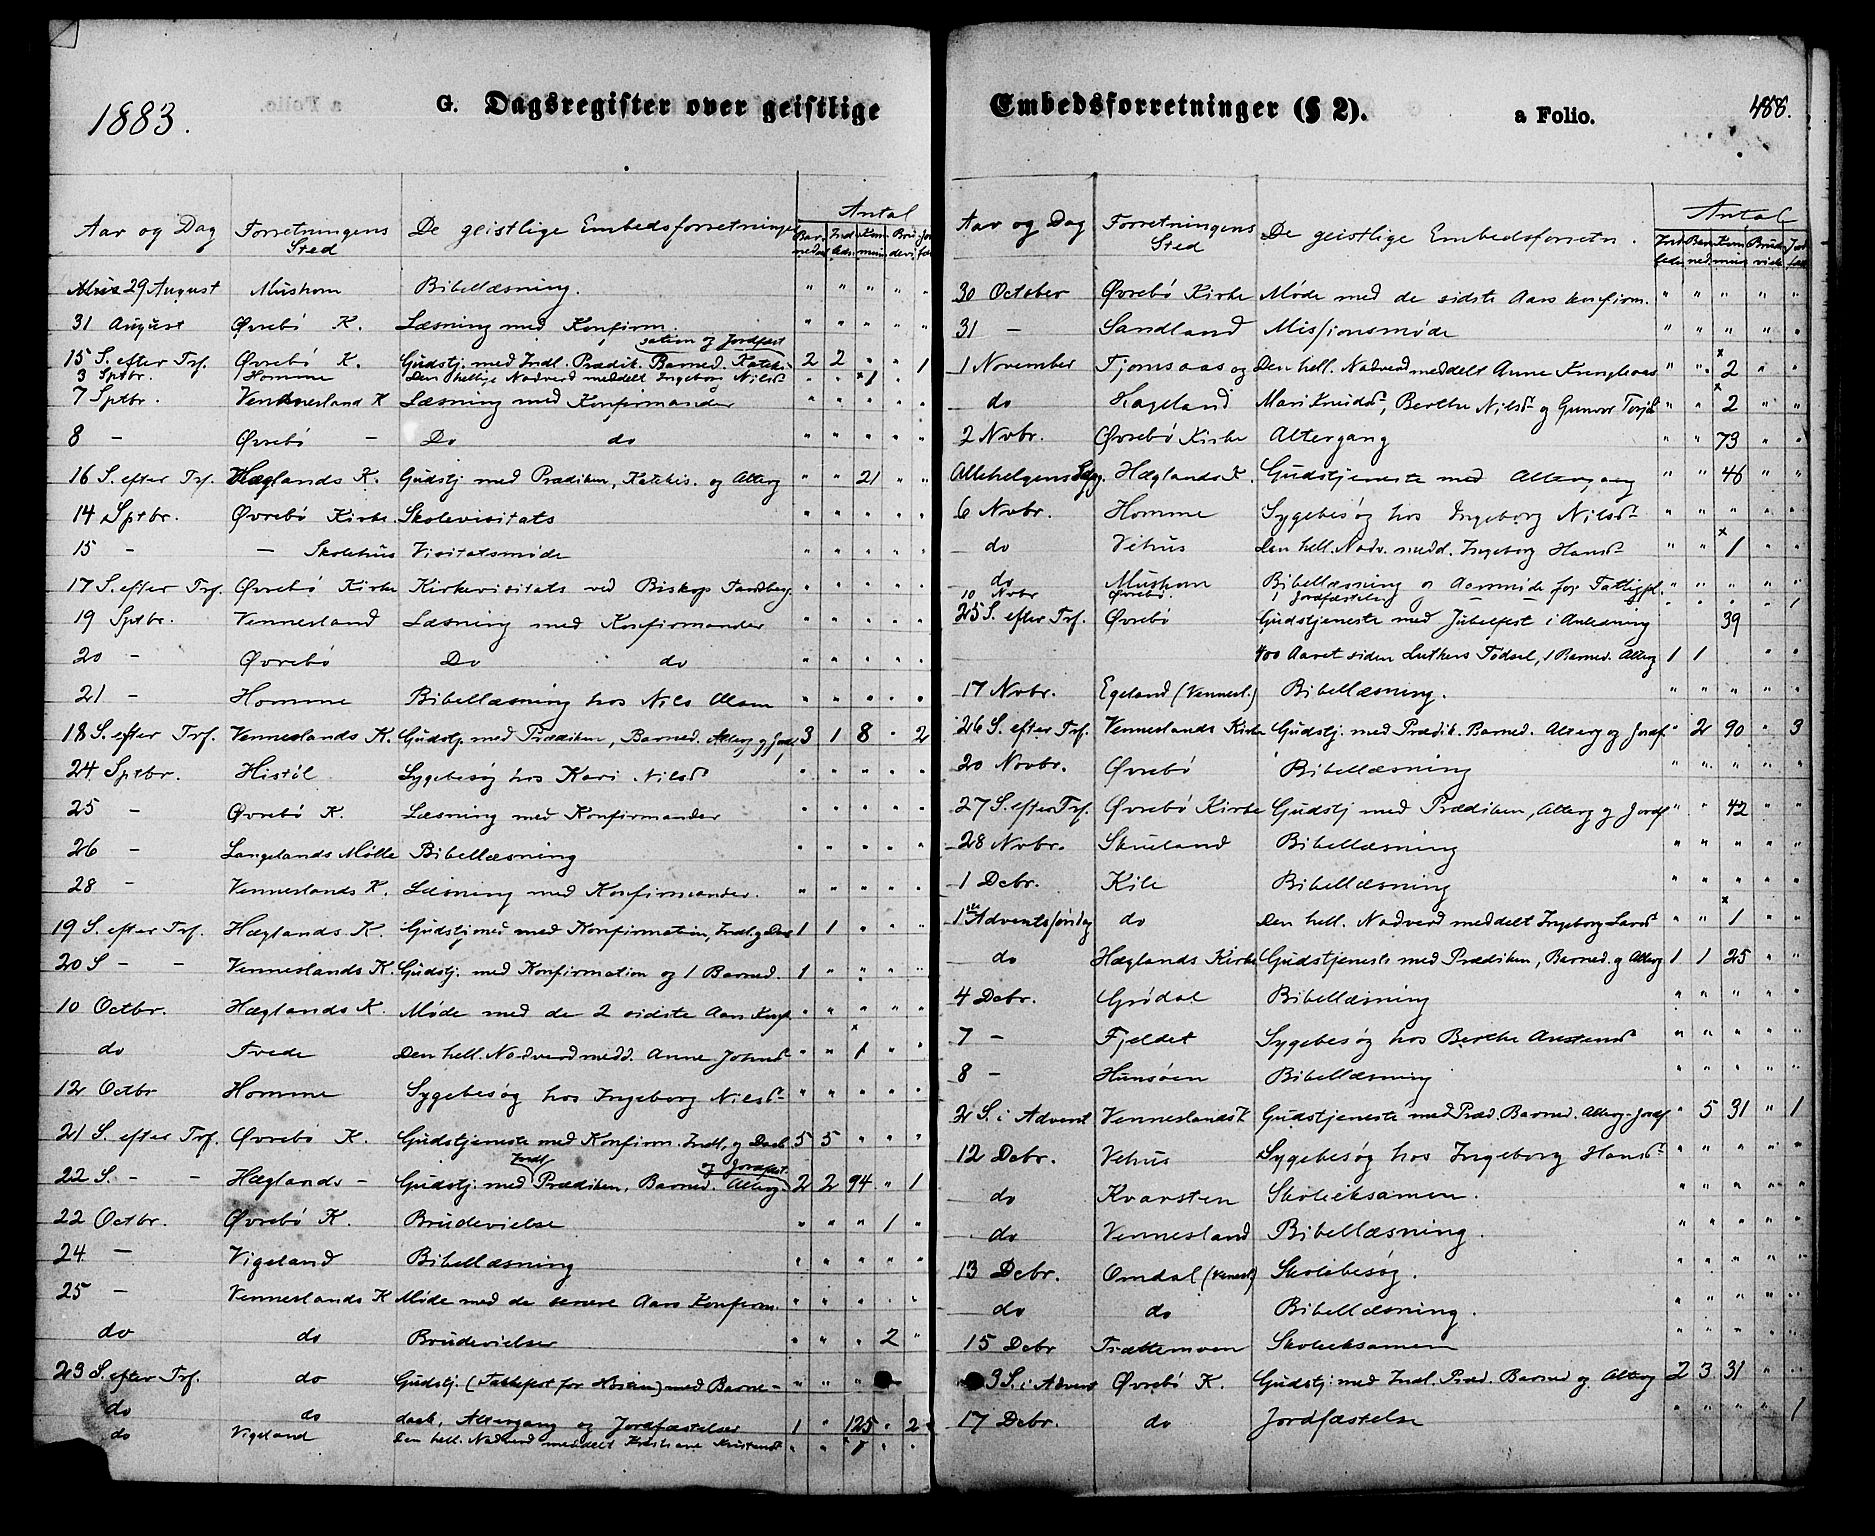 1883.
G. Dagsregister over geistlige
Aar og Dag Forretningens Sted De geistlige Embedsforretninger Antal
29 August Mushom Bibellæsning. " " " " "
31 August Øvrebö K. Læsning med Konfirm. " " " " "
sation og Jordfæst
15 S. efter Trf. Øvrebö K. Gudstj. med Indl. Prædik. Barned. Kateki- 2 2 " " 1
3 Sptbr. Homme Den hellige Nadverd meddelt Ingeborg Nilsd. " " x1 " "
7 Sptbr. Vennesland K Læsning med Konfirmander " " " " "
8 – Øvrebö – Do do " " " " "
16 S. efter Trf. Hæglands K. Gudstj med Prædiken, Katekis. og Alterg " " 21 " "
14 Sptbr. Øvrebö Kirke Skolevisitats " " " " "
15 – – Skolehus Visitatsmøde " " " " "
17 S. efter Trf. Øvrebö Kirke Kirkevisitats ved Biskop Tandberg " " " " "
19 Sptbr. Vennesland Læsning med Konfirmander " " " " "
20 – Øvrebö Do do " " " " "
21 – Homme Bibellæsning hos Nils Olsen " " " " "
18 S. efter Trf. Venneslands K. Gudstj. med Prædiken, Barned. Alterg og Jordf. 3 1 8 " 2
24 Sptbr. Histöl Sygebesøg hos Kari Nilsd " " " " "
25 – Øvrebö K. Læsning med Konfirmander " " " " "
26 – Langelands Mølle Bibellæsning " " " " "
28 – Venneslands K. Læsning med Konfirmander. " " " " "
19 S. efter Trf. Hæglands K. Gudstj med Konfirmation, Indl. og Daab 1 1 " " "
20 S – – Venneslands K. Gudstj. med Konfirmation og 1 Barned. 1 " " " "
10 Octbr. Hæglands K. Møde med de 2 sidste Aars Konf. " " " " "
do Tvede Den hell. Nadverd medd. Anne Johnsd " " x1 " "
12 Octbr Homme Sygebesøg hos Ingeborg Nilsd " " " " "
21 S. efter Trf. Øvrebö K. Gudstjeneste med Konfirm. Indl. og Daab 5 5 " " "
Indl. og Jordfæst.
22 S. – – Hæglands – Gudstj. med Prædiken, Barned. Alterg 2 2 94 " 1
22 Octbr. Øvrebö K. Brudevielse " " " 1 "
24 – Vigeland Bibellæsning " " " " "
25 – Venneslands K Møde med de senere Aars Konfirm. " " " " "
do do Brudevielser " " " 2 "
23 S. efter Trf. do Gudstj. (Takkefest for Høsten) med Barne- " " "
do do daab, Altergang og Jordfæstelser 1 " 125 " 2
do Vigeland Den hell. Nadverd meddelt Kristiane Kristensd " " 1 " "
Embedsforretninger (§ 2). a Folio. 488.
Aar og Dag Forretningens Sted De geistlige Embedsforretn. Antal
30 October Øvrebö Kirke Møde med de sidste Aars konfirm. " " " " "
31 – Sandland Missionsmøde " " " " "
1 November Fjomsaas og Den hell. Nadverd meddelt Anne " " x2 " "
do Hageland Mari Knudsd, Berthe Nilsd og Gunvor Torjsd " " x2 " "
2 Novbr. Øvrebö Kirke Altergang " " 73 " "
Allehelgens Hæglands K. Gudstjeneste med Altergang " " 46 " "
6 Novbr. Homme Sygebesøg hos Ingeborg Nilsd " " " " "
do Vehus Den hell. Nadv. medd. Ingeborg Hansd " " x1 " "
do Mushom Bibellæsning og for Fattigpl. " " " " "
10 Novbr Øvrebö. Jordfæstelse " " " " 1
25 S. efter Trf. Øvrebö Gudstjeneste med Jubelfest i Anledning 39
400 Aaret siden Luthers Fødsel, 1 Barned. Alterg 1 1 " "
17 Novbr. Egeland (Vennesl.) Bibellæsning. " " " " "
26 S. efter Trf. Venneslands Kirke Gudstj. med Prædik. Barned. Alterg og Jordf " 2 90 " 3
20 Novbr. Øvrebö Bibellæsning " " " " "
27 S. efter Trf. Øvrebö Kirke Gudstj med Prædiken, Alterg og Jordf " " 42 " "
28 Novbr. Skuland Bibellæsning " " " " "
1 Decbr. Kile Bibellæsning " " " " "
1ste Adventssøndag do Den hell. Nadverd meddelt Ingeborg Larsd " " x1 " "
do Hæglands Kirke Gudstjeneste med Prædiken, Barned. og Alterg 1 1 25 " "
4 Decbr. Grödal Bibellæsning " " " " "
7 – Fjeldet Sygebesøg hos Berthe Austensd " " " " "
8 – Hunsöen Bibellæsning " " " " "
2 S. i Advent Venneslands K Gudstjeneste med Præd. Barned. Alterg. Jordf " 5 31 " 1
12 Decbr. Vehus Sygebesøg hos Ingeborg Hansd " " " " "
do Kvarsten Skoleeksamen. " " " " "
do Vennesland Bibellæsning. " " " " "
13 Decbr. Omdal (Vennesl) Skolebesøg. " " " " "
do do Bibellæsning. " " " " "
15 Decbr Trættemoen Skoleeksamen " " " " "
3 S. i Advent Øvrebö K. Gudstj. med Indl. Præd. Barned og Alterg 2 3 31 " "
17 Decbr. do Jordfæstelse " " " " 1